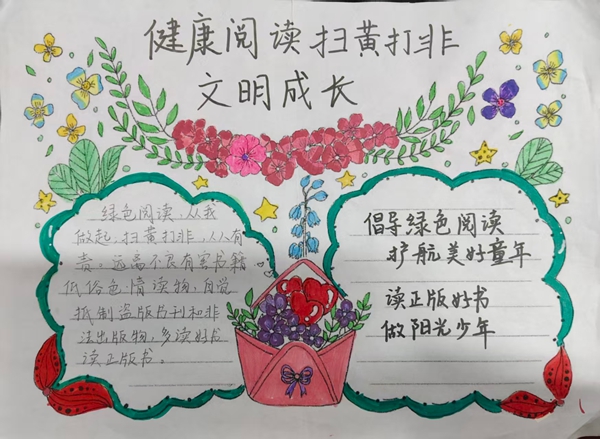 健康阅读扫黄打非
文明成长
绿色阅读，从我
做起，扫黄打非，人人有
责。远离不良有害书籍
低俗色情读物，自觉
抵制盗版书刊和非
法出版物，多读好书
读正版书。
倡导绿色阅读
护航美好童年
读正版好书
做阳光少年